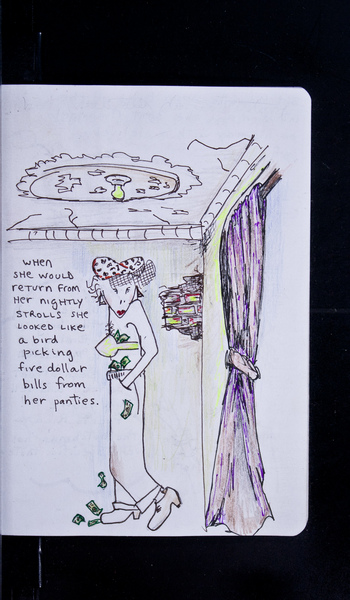 WHEN
SHE WOULD
RETURN FROM
HER NIGHTLY
STROLLS SHE
LOOKED LIKE
a bird
picking
five dollar
bills from
her panties.